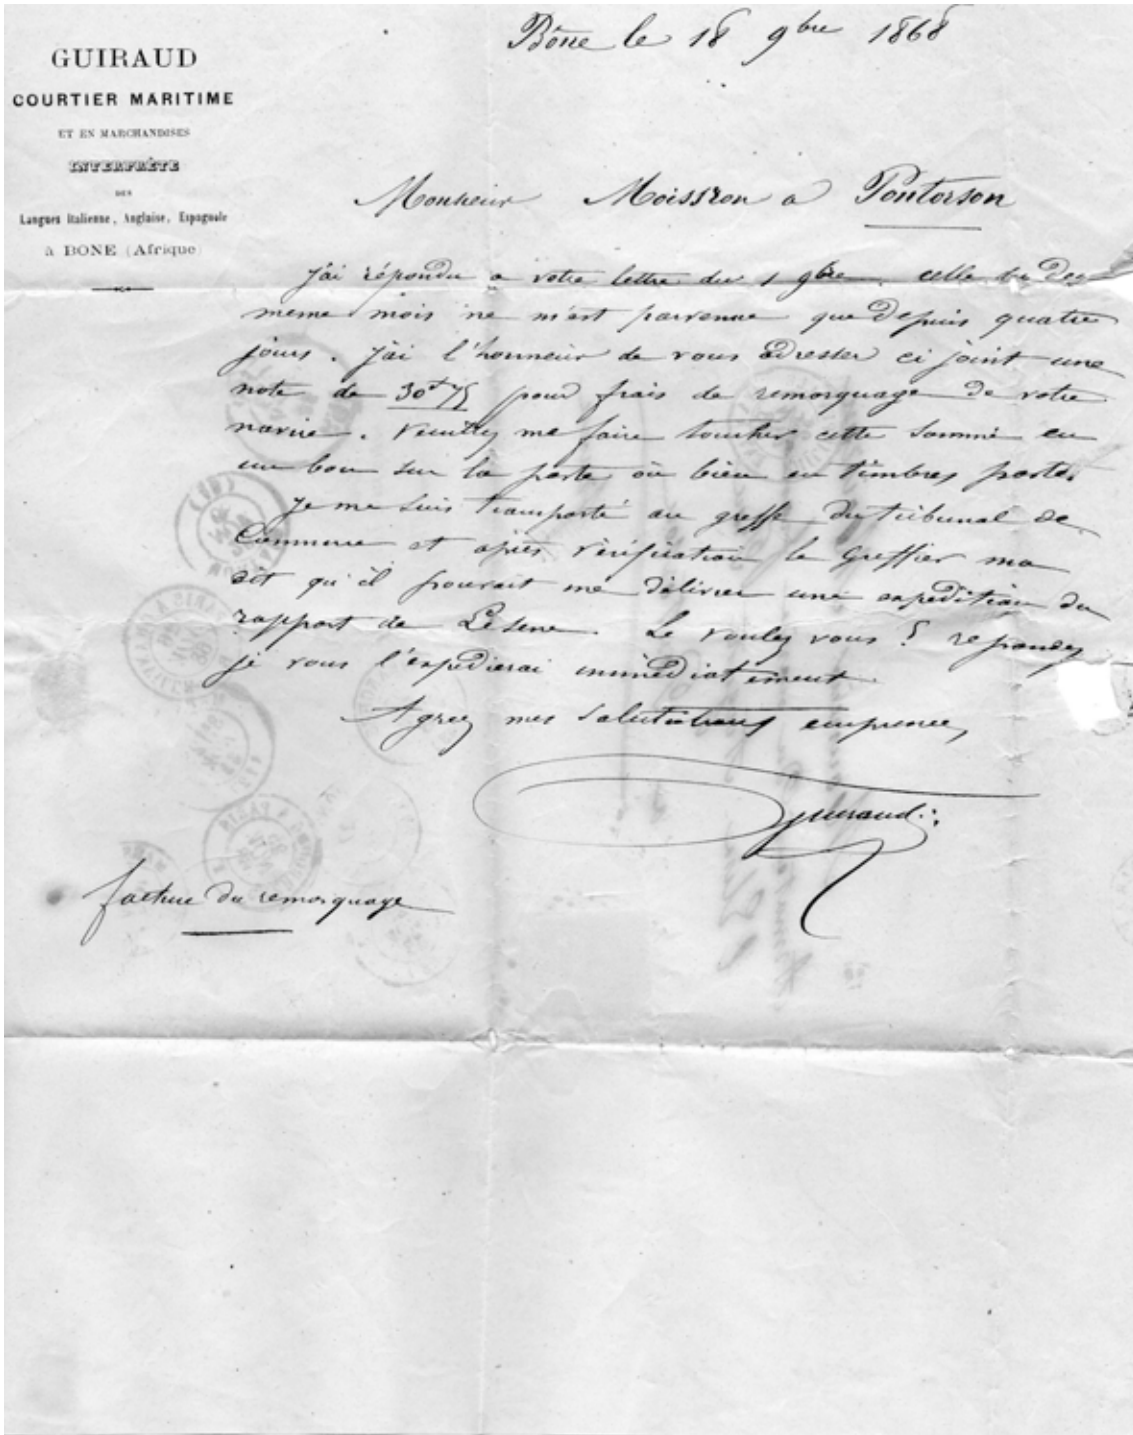 GUIRAUD
COURTIER MARITIME
ET EN MARCHANDISES
INTERPRÈTE
DES
Langues Italienne, Anglaise, Espagnole
à BONE (Afrique)
Bône le 18 9bre 1868
Monsieur Moisson a Pontorson
J'ai répondu a votre lettre du 1 9bre celle du
meme mois ne m'est parvenue que depuis quatre
jours. J'ai l'honneur de vous adresser ci joint une
note de 30f 75 pour frais de remorquage de votre
navire. Veuillez me faire toucher cette somme en
un bon sur la poste ou bien en timbres postes
Je me suis transporté au greffe du tribunal de
Commerce et après vérification le Greffier ma
dit qu'il pourrait me délivrer une expédition du
rapport de Lesene. Le voulez vous ? repondez
je vous l'expedierai immédiatement
Agreez mes salutations empressées
Guiraud
facture du remorquage